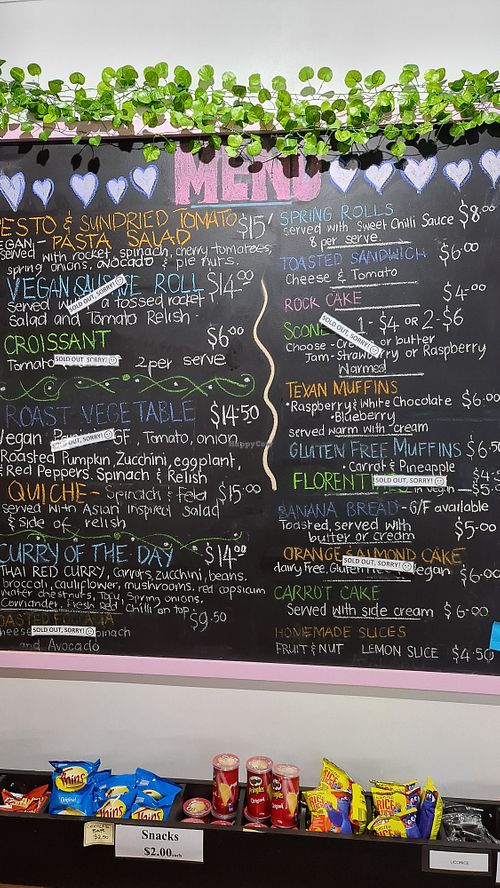 MENU
PESTO & SUNDRIED TOMATO $15
VEGAN - PASTA SALAD
served with rocket, spinach, cherry tomatoes,
spring onions, avocado & pine nuts.
VEGAN SAUSAGE ROLL $14.00
SOLD OUT, SORRY!
served a tossed rocket
Salad and Tomato Relish.
CROISSANT $6.00
Tomato SOLD OUT, SORRY! 2 per serve
ROAST VEGETABLE $14.50
Vegan SOLD OUT, SORRY! GF, Tomato, onion
Roasted Pumpkin, Zucchini, eggplant,
& Red Peppers. Spinach & Relish
QUICHE - Spinach & Feta $15.00
served with Asian inspired salad
& side of relish
CURRY OF THE DAY $14.00
THAI RED CURRY, carrots, zucchini, beans,
broccoli, cauliflower, mushrooms, red capsicum
Water chestnuts, Tofu, Spring onions.
Coriander, Fresh Red Chilli on top
$9.50
Cheese SOLD OUT, SORRY! Spinach
and Avocado
SPRING ROLLS $8.00
served with Sweet Chilli Sauce
8 per serve
TOASTED SANDWICH $6.00
Cheese & Tomato
ROCK CAKE $4.00
SOLD OUT, SORRY! 1-$4 OR 2-$6
Choose - or butter
Jam-Strawberry or Raspberry
Warmed!
TEXAN MUFFINS
•Raspberry & White Chocolate $6.00
•Blueberry
served warm with cream
GLUTEN FREE MUFFINS $6.50
•Carrot & Pineapple
FLORENT SOLD OUT, SORRY! $4.5
vegan
BANANA BREAD - G/F available
Toasted, served with $5.00
butter or cream
ORANGE & ALMOND CAKE
dairy Free, Gluten SOLD OUT, SORRY! Vegan $6.00
CARROT CAKE
Served with side cream $6.00
HOMEMADE SLICES
FRUIT & NUT LEMON SLICE $4.50
HappyCow
Thins
Original
Pringles
Pringles
RICE
Snacks
$2.00 each
LICORICE